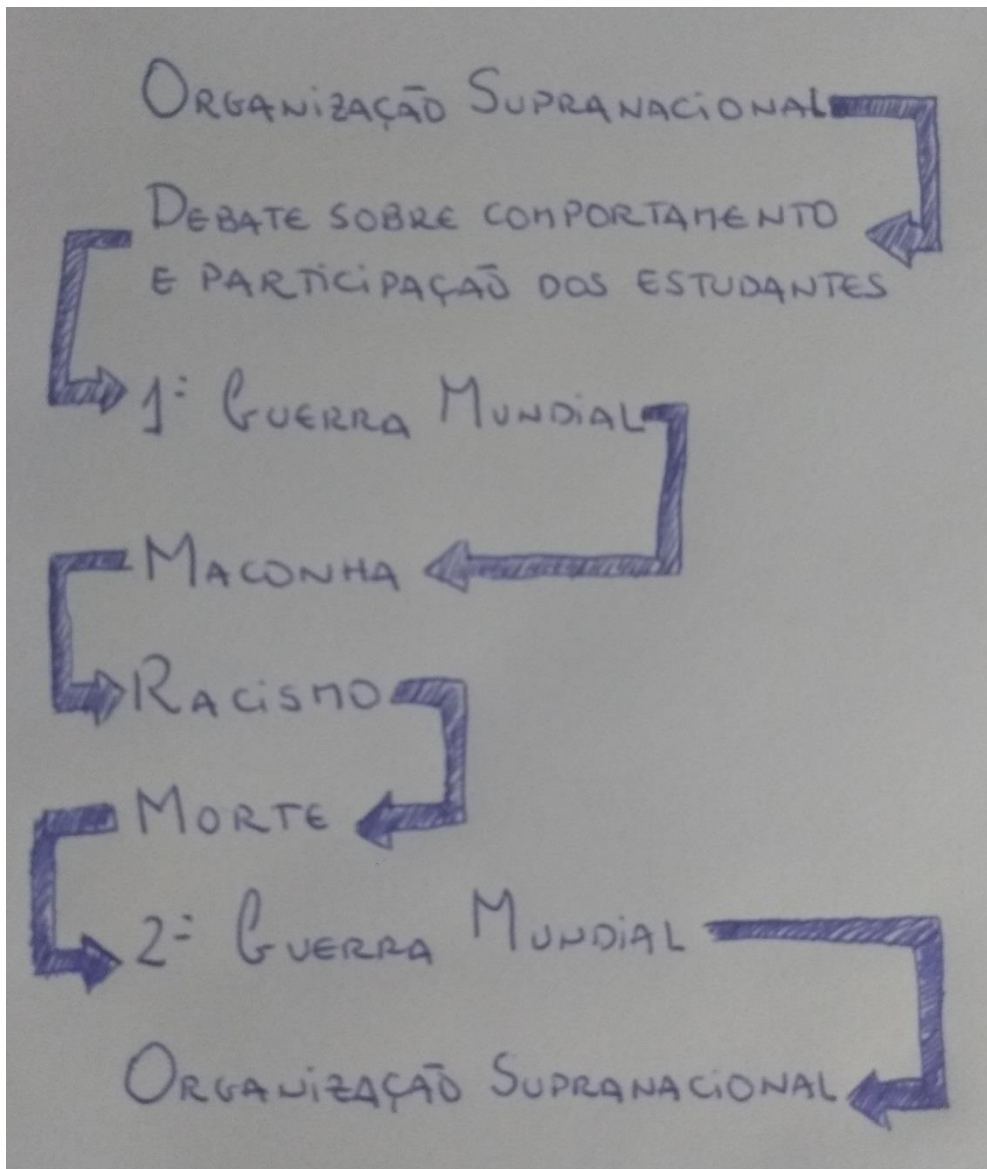 Organização Supranacional
Debate sobre comportamento
e participação dos estudantes
1ª Guerra Mundial
Maconha
Racismo
Morte
2ª Guerra Mundial
Organização Supranacional